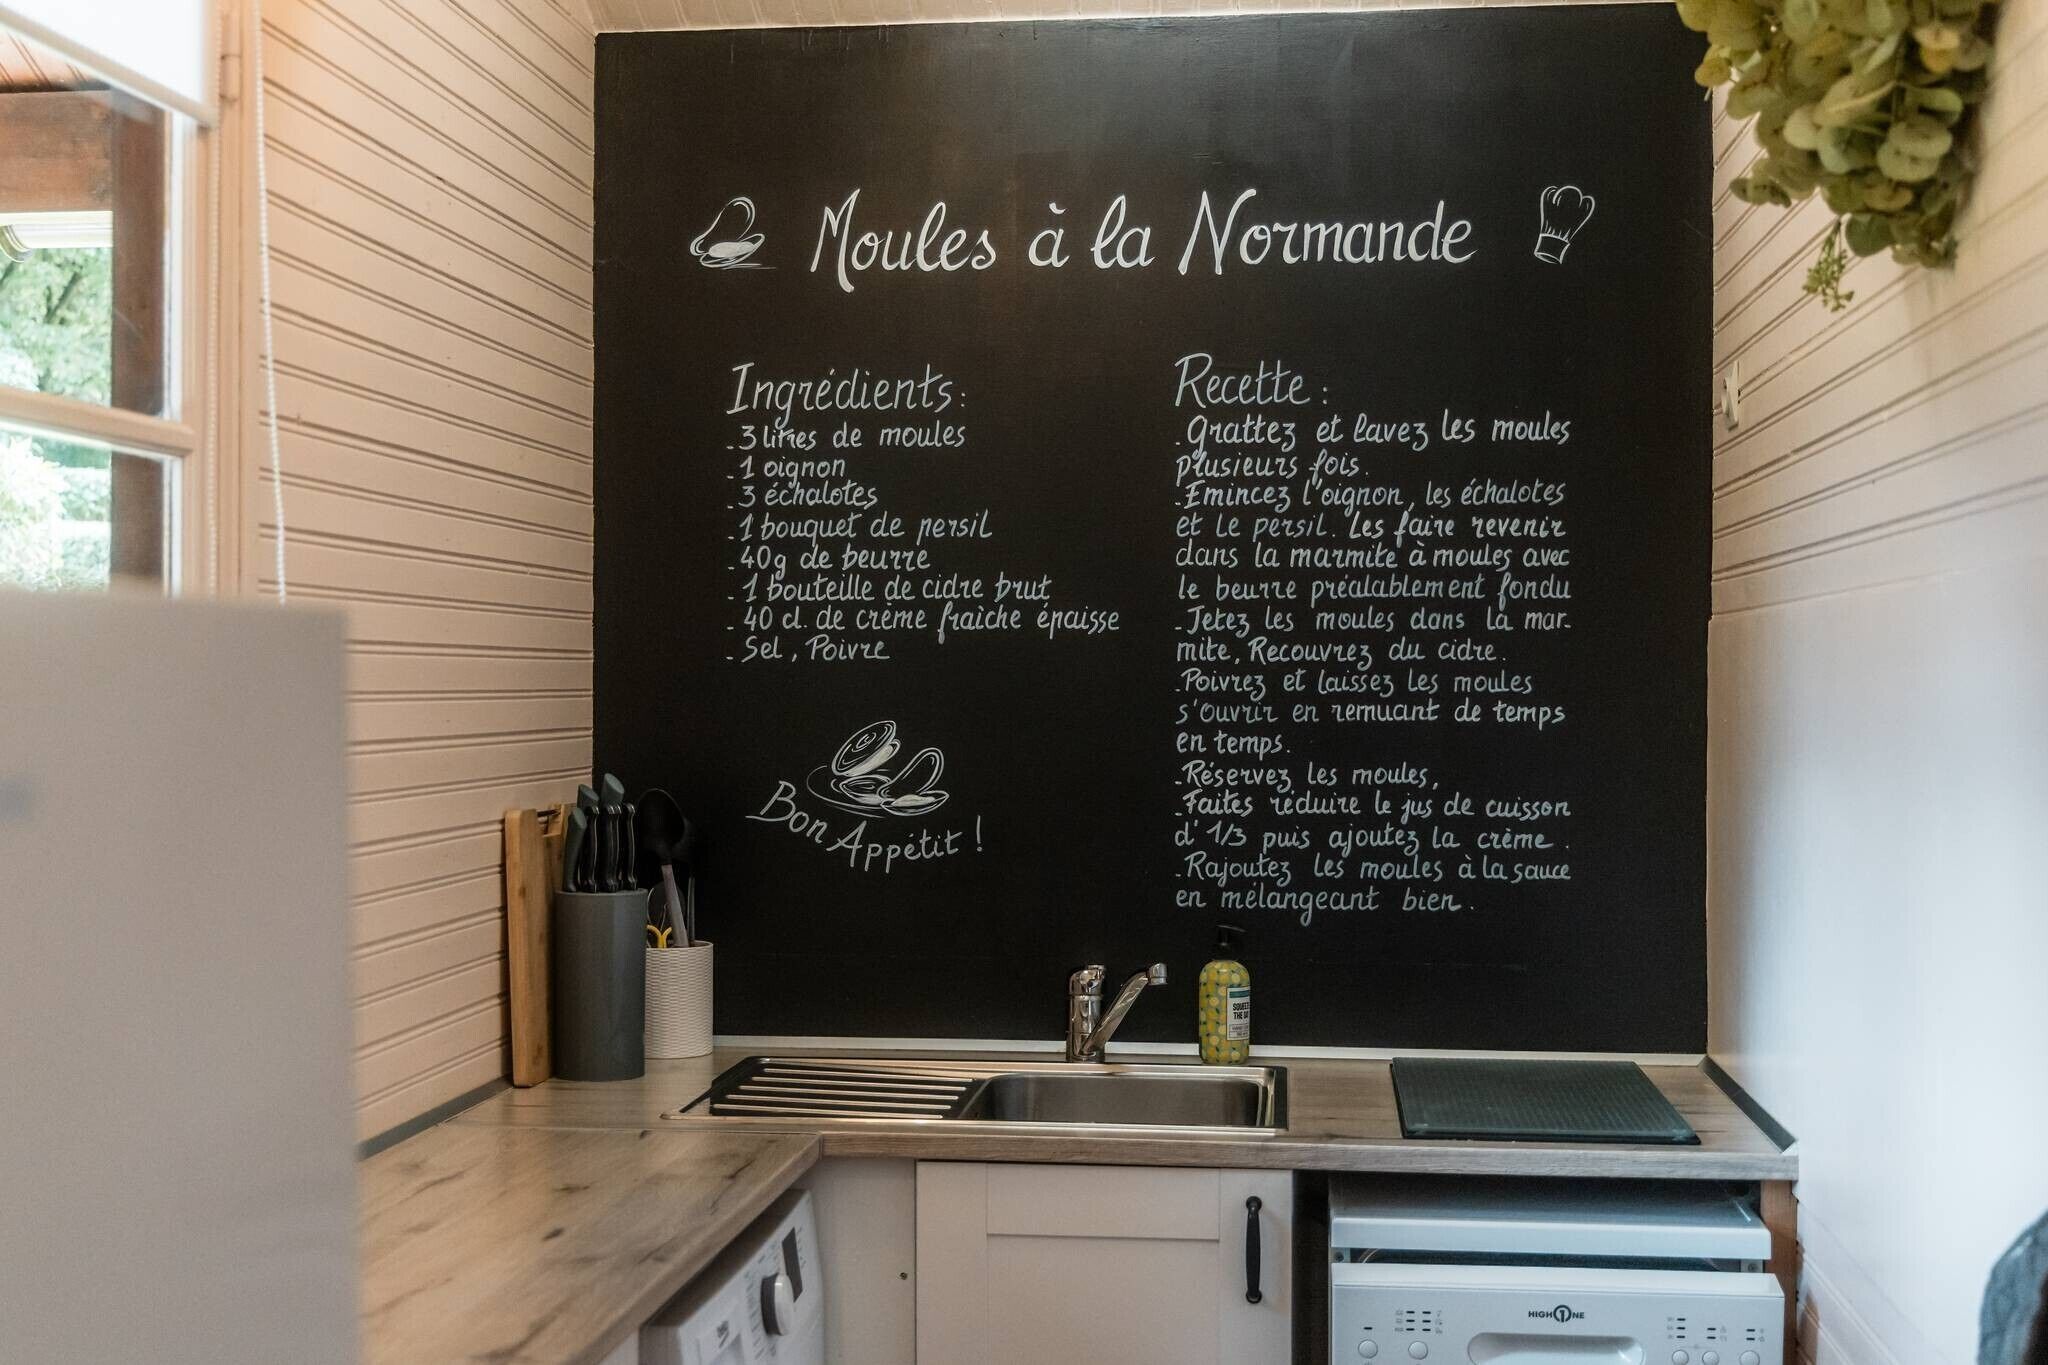 Moules à la Normande
Ingrédients:
- 3 litres de moules
- 1 oignon
- 3 échalotes
- 1 bouquet de persil
- 40g de beurre
- 1 bouteille de cidre brut
- 40 cl. de crème fraîche épaisse
- Sel, Poivre
Bon Appétit !
Recette :
- Grattez et lavez les moules
plusieurs fois.
- Emincez l'oignon, les échalotes
et le persil. Les faire revenir
dans la marmite à moules avec
le beurre préalablement fondu
- Jetez les moules dans la mar-
mite, Recouvrez du cidre.
- Poivrez et laissez les moules
s'ouvrir en remuant de temps
en temps.
- Réservez les moules,
- Faites réduire le jus de cuisson
d' 1/3 puis ajoutez la crème.
- Rajoutez les moules à la sauce
en mélangeant bien.
SQUEEZE
THE DAY
beko
HIGH ONE